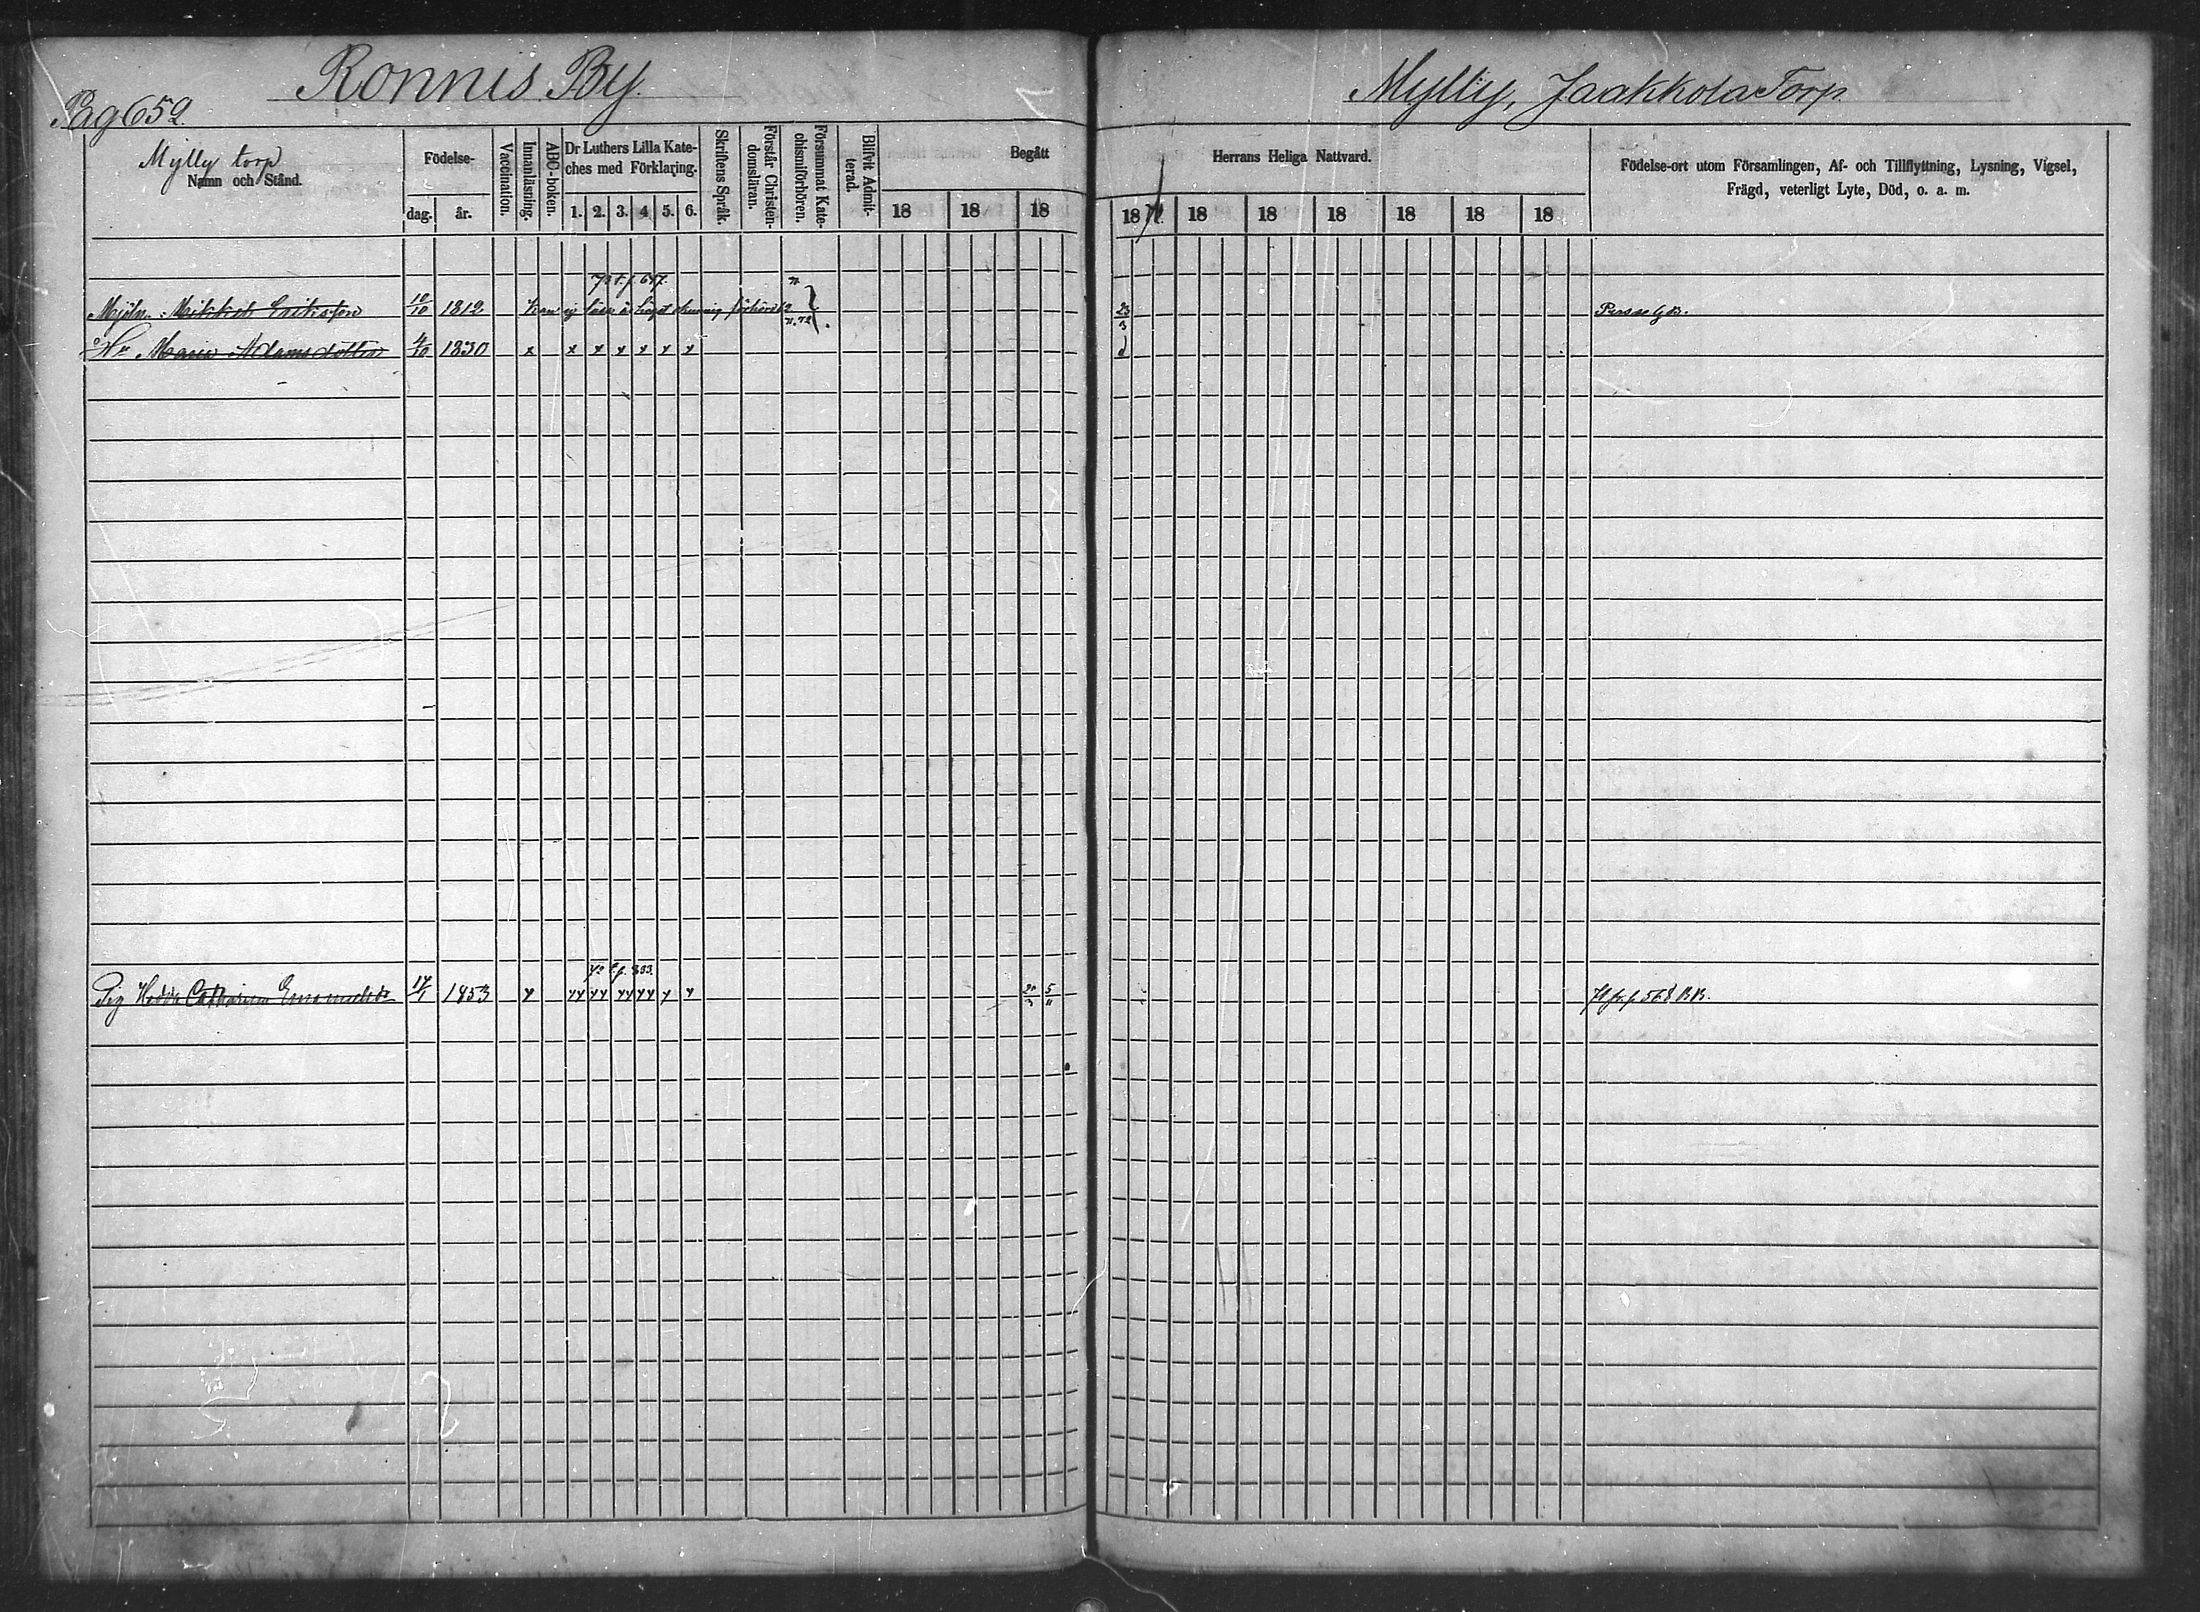 Pag 652.
Ronnis By.
Mylly, Jaakkola Torp.
Mylly torp
Namn och Stånd.
Födelse-
dag.
år.
Vaccination.
Innanläsning.
ABC-boken.
Dr Luthers Lilla Kate-
ches med Förklaring.
1. 2. 3. 4 5. 6.
Skriftens Språk.
Förstår Christen-
domsläran.
Försummat Kate-
chismiförhören.
Blifvit Admit-
terad.
Begått
18 18 18
Herrans Heliga Nattvard.
18 18 18 18 18 18 18
Födelse-ort utom Församlingen, Af- och Tillflyttning, Lysning, Vigsel,
Frägd, veterligt Lyte, Död, o. a. m.
73 t. p. 647.
Mjöln. Mikkel Eriksson 10/10 1812 Kan ej läsa 23/3
H:u Maria Adamsdotter 4/10 1830 x x x x x x x
p. 833.
Pig Hedda Catharina Emanuelsdr 1853 5/11 fr. p. 568 BB.